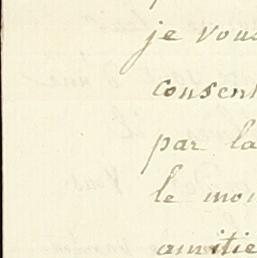 je vous
consent
par la
le mon
amitié